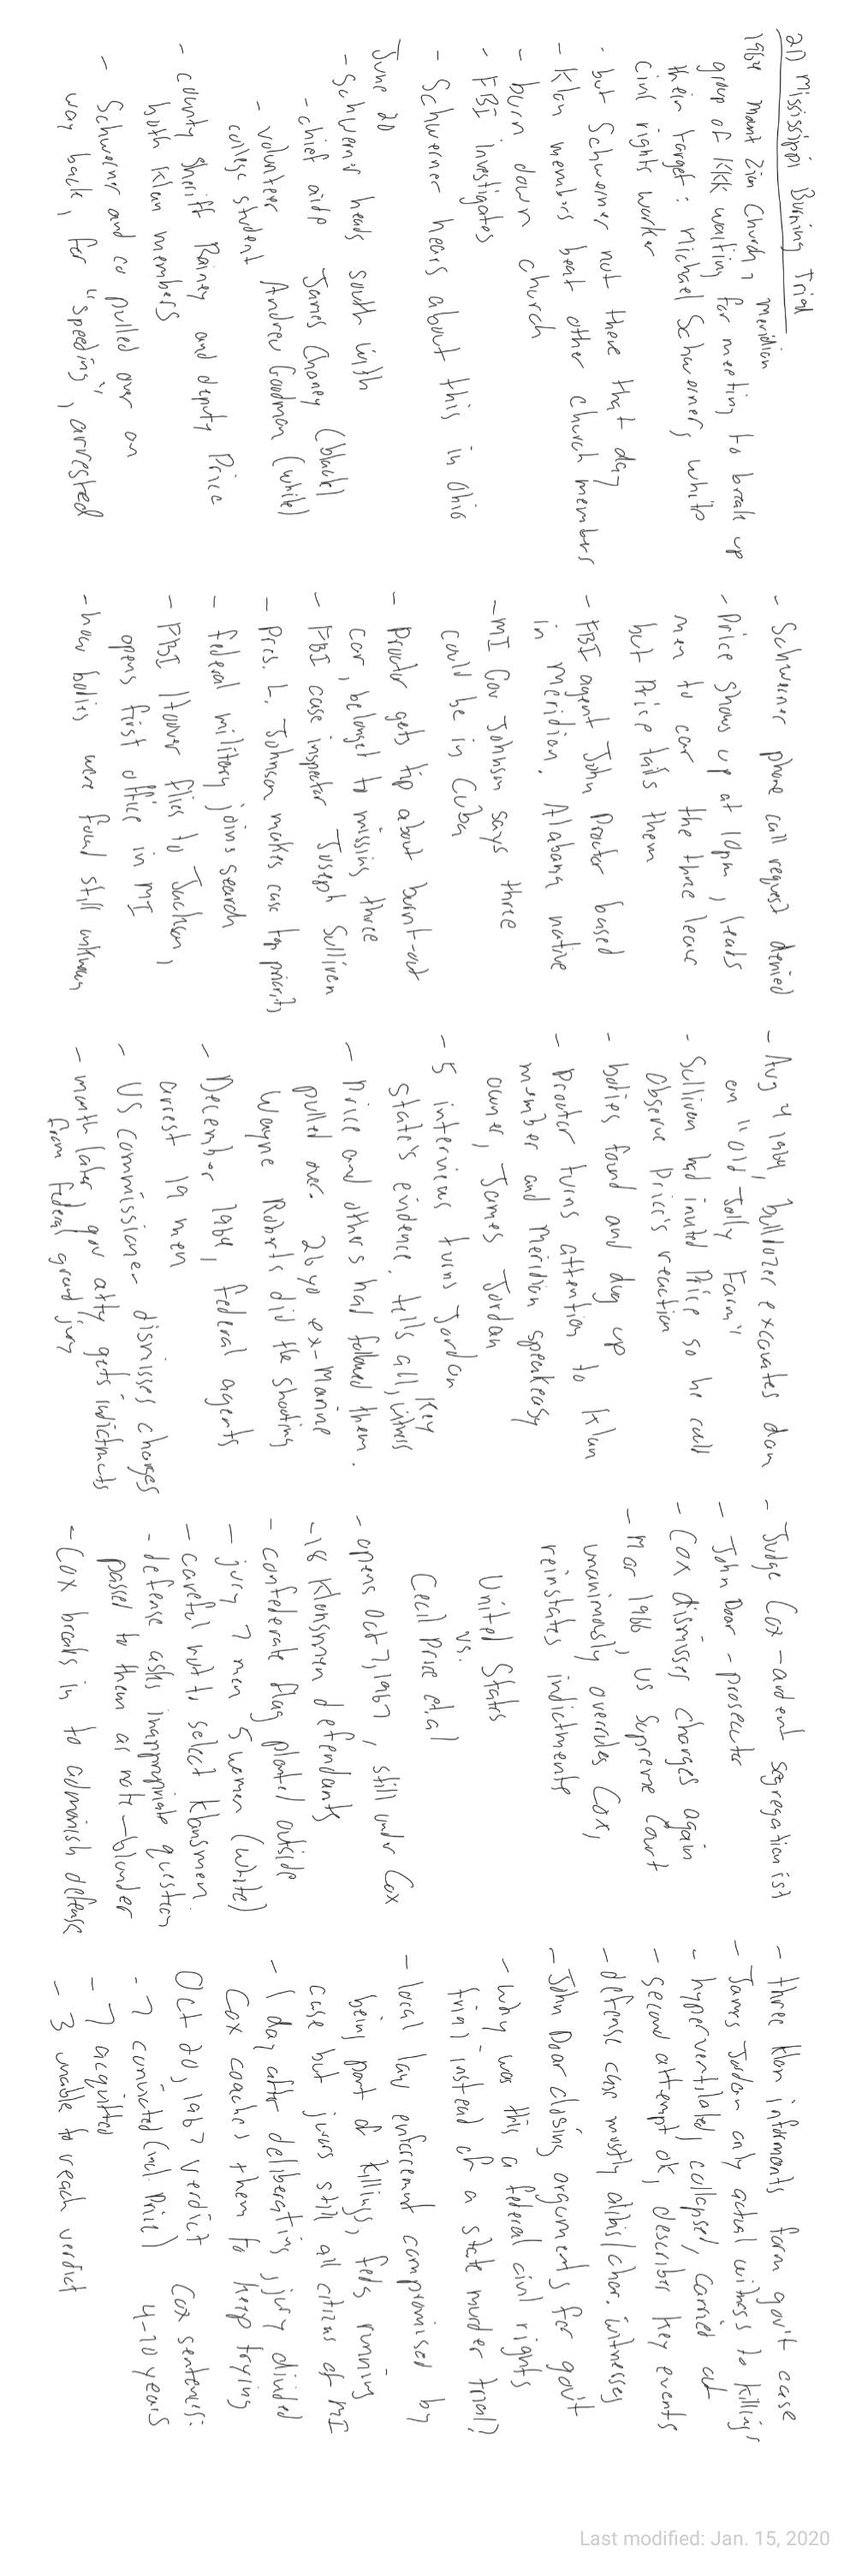 21) Mississippi Burning Trial
1964 Mount Zion Church, Meridian
group of KKK waiting for meeting to break up
their target: Michael Schwerner, white
civil rights worker
- but Schwerner not there that day
- Klan members beat other church members
- burn down church
- FBI investigates
- Schwerner hears about this in Ohio
June 20
- Schwerner heads south with
- chief aide James Chaney (black)
- volunteer Andrew Goodman (white)
college student
- county Sheriff Rainey and deputy Price
both Klan members
- Schwerner and co pulled over on
way back, for "speeding", arrested
- Schwerner phone call request denied
- Price shows up at 10pm, leads
men to car the three leave
but Price tails them
- FBI agent John Proctor based
in Meridian. Alabama native
- MI Gov Johnson says three
could be in Cuba
- Proctor gets tip about burnt-out
car, belonged to missing three
- FBI case inspector Joseph Sullivan
- Pres. L. Johnson makes case top priority
- federal military joins search
- FBI Hoover flies to Jackson,
opens first office in MI
- how bodies were found still unknown
- Aug 4 1964, bulldozer excavates dam
on "Old Jolly Farm"
- Sullivan had invited Price so he could
observe Price's reaction
- bodies found and dug up
- Proctor turns attention to Klan
member and Meridian speakeasy
owner, James Jordan
- 5 interviews turns Jordan
state's evidence. tells all, key witness
- Price and others had followed them.
pulled over. 26 yo ex-Marine
Wayne Roberts did the shooting
- December 1964, federal agents
arrest 19 men
- US commissioner dismisses charges
- month later, gov atty gets indictments
from federal grand jury
- Judge Cox - ardent segregationist
- John Doar - prosecutor
- Cox dismisses charges again
- Mar 1966, US Supreme Court
unanimously overrules Cox,
reinstates indictments
United States
vs.
Cecil Price et.al
- opens Oct 7, 1967, still under Cox
- 18 Klansmen defendants
- confederate flag planted outside
- jury 7 men 5 women (white)
- careful not to select Klansmen.
- defense asks inappropriate question
passed to them as note - blunder
- Cox breaks in to admonish defense
- three klan informants form gov't case
- James Jordan only actual witness to killings
- hyperventilated, collapsed, carried out
- second attempt ok, describes key events
- defense case mostly alibis/char. witnesses
- John Doar closing arguments for gov't
- why was this a federal civil rights
trial instead of a state murder trial?
- local law enforcement compromised by
being part of killings, feds running
case but jurors still all citizens of MI
- 1 day after deliberating, jury divided
Cox coaches them to keep trying
Oct 20, 1967 verdict
- 7 convicted (incl. Price)
- 7 acquitted
- 3 unable to reach verdict
Cox sentences:
4-10 years
Last modified: Jan. 15, 2020